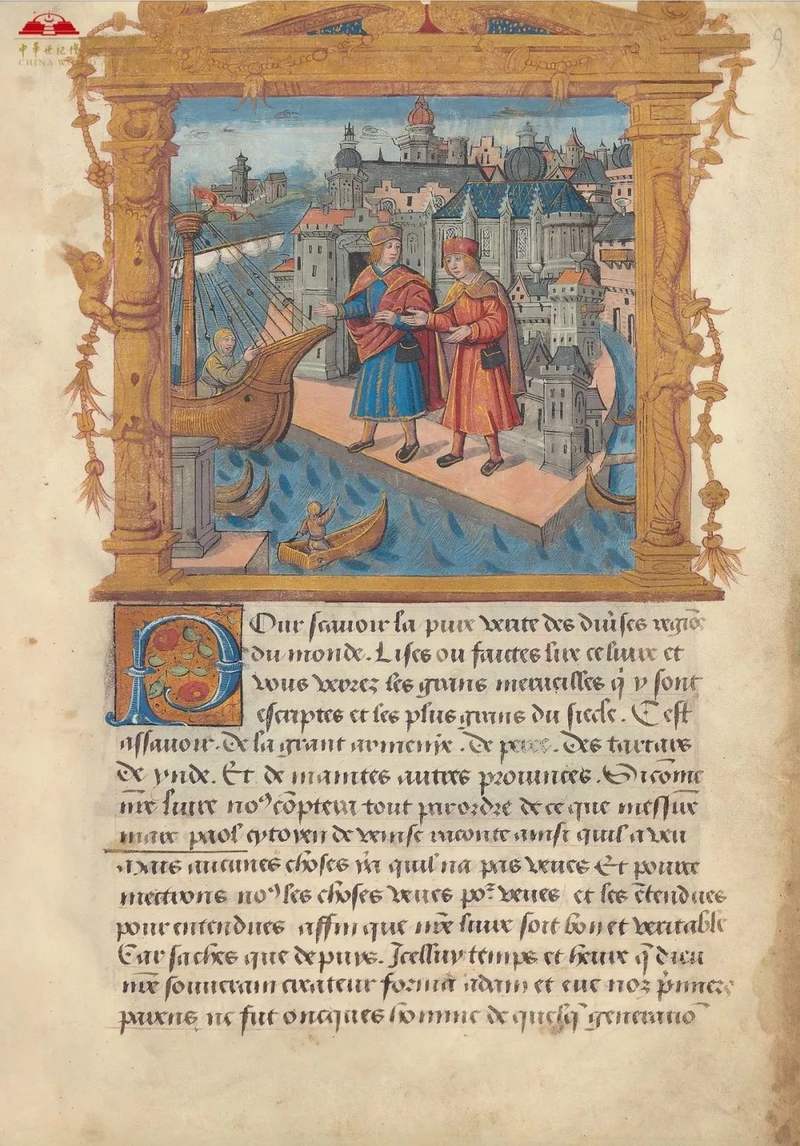 中華世紀
CHINA W
9
Pour scauoir la pure verite des diuses regiōs
du monde. Lises ou faictes lire ce liure et
vous verrez les grans merueilles q̄ y sont
escriptes et les plus grans du siecle. Cest
assauoir. De la grant armenie. De perce. Des tartars
De ynde. Et de maintes autres prouinces. Si cōme
nr̄e liure noꝰ cōptera tout par ordre de ce que messire
marc paol cytoyen de venise raconte ainsi quil a veu
Mais aucunes choses ya quil na pas veues Et pource
mectrons noꝰ les choses veues poʳ veues et les ētendues
pour entendues affin que nr̄e liure soit bon et veritable
Car saches que depuys. Icelluy temps et heure q̄ dieu
nr̄e souuerain createur forma adam et eue noz p̄miers
parens ne fut oncques homme de quelq̄ generatiō